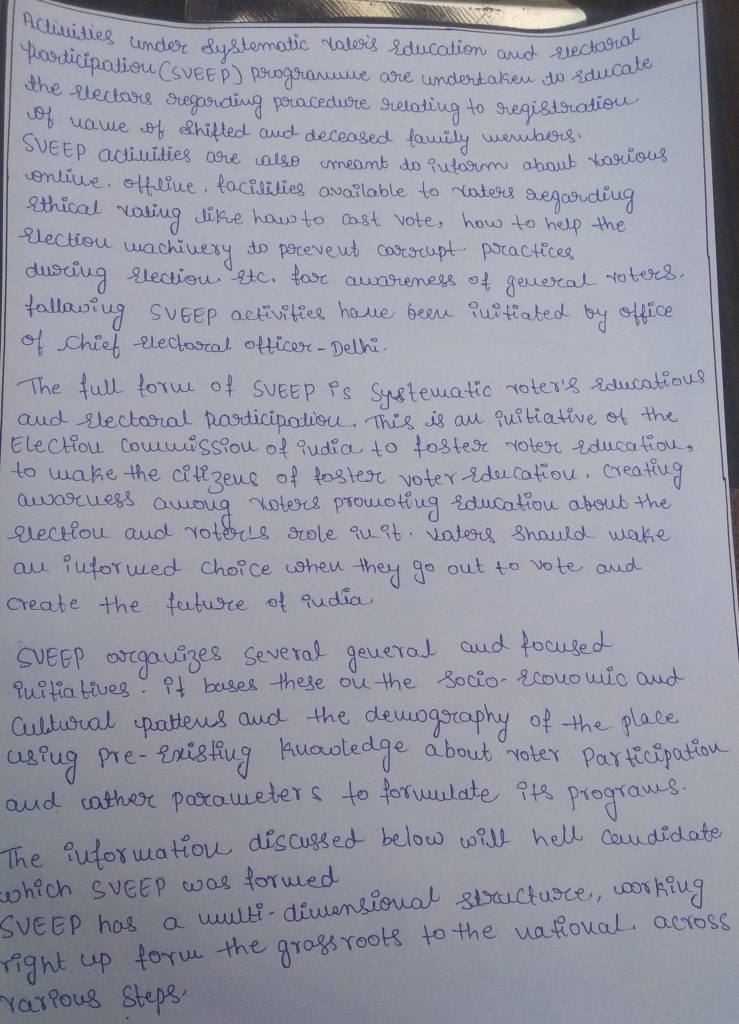 Activities under Systematic Voter's Education and Electoral
Participation (SVEEP) programme are undertaken to educate
the electors regarding procedure relating to registration
of name of shifted and deceased family members.
SVEEP activities are also meant to inform about various
online. offline. facilities available to voters regarding
Ethical voting like how to cast vote, how to help the
Election machinery to prevent corrupt practices
during election. etc. for awareness of general voters.
following SVEEP activities have been initiated by office
of Chief Electoral officer - Delhi.
The full form of SVEEP is Systematic voter's Educations
and Electoral participation. This is an initiative of the
Election Commission of india to foster voter education,
to make the citizens of foster voter education. Creating
awarness among voters promoting Education about the
Election and voter's role in it. Voters should make
an informed choice when they go out to vote and
create the future of india
SVEEP organizes several general and focused
initiatives. it bases these on the Socio-Economic and
Cultural pattens and the demography of the place
using pre-existing knowledge about voter participation
and other parameters to formulate its programs.
The information discussed below will hell candidate
which SVEEP was formed
SVEEP has a multi-dimensional structure, working
right up form the grassroots to the national. across
various steps.